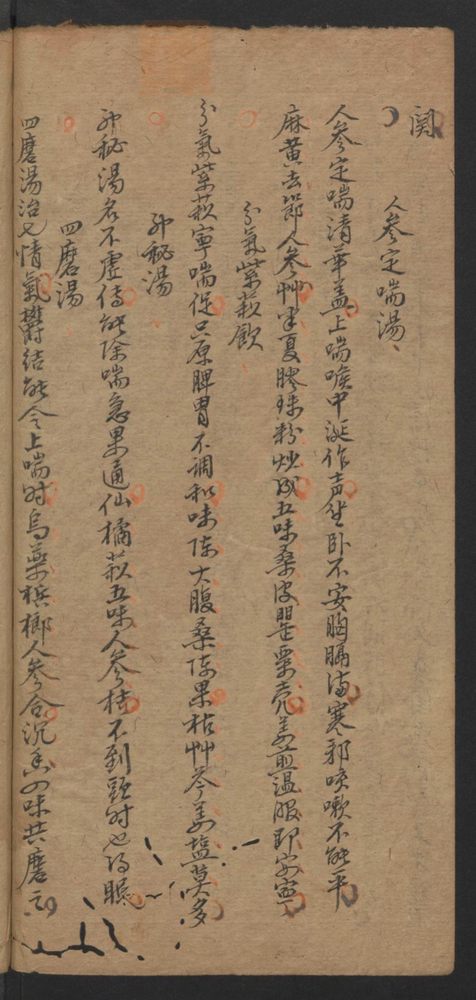 関
人参定喘湯
人参定喘清華盖上喘喉中涎作声坐卧不安胸膈满寒邪咳嗽不能平
麻黄去節人参艸半夏膠珠粉炒成五味桑皮罌粟壳姜煎温服即安寧
分氣紫蘓飲
分氣紫蘓寧喘促只原脾胃不調和味陈大腹桑陈果桔艸苓姜塩莫多
神秘湯
神秘湯名不虚傳能除喘急果通仙橘蘓五味人参桔不到頭时也得眠
四磨湯
四磨湯治七情氣欝结能令上喘时烏藥槟榔人参合沉香四味共磨之